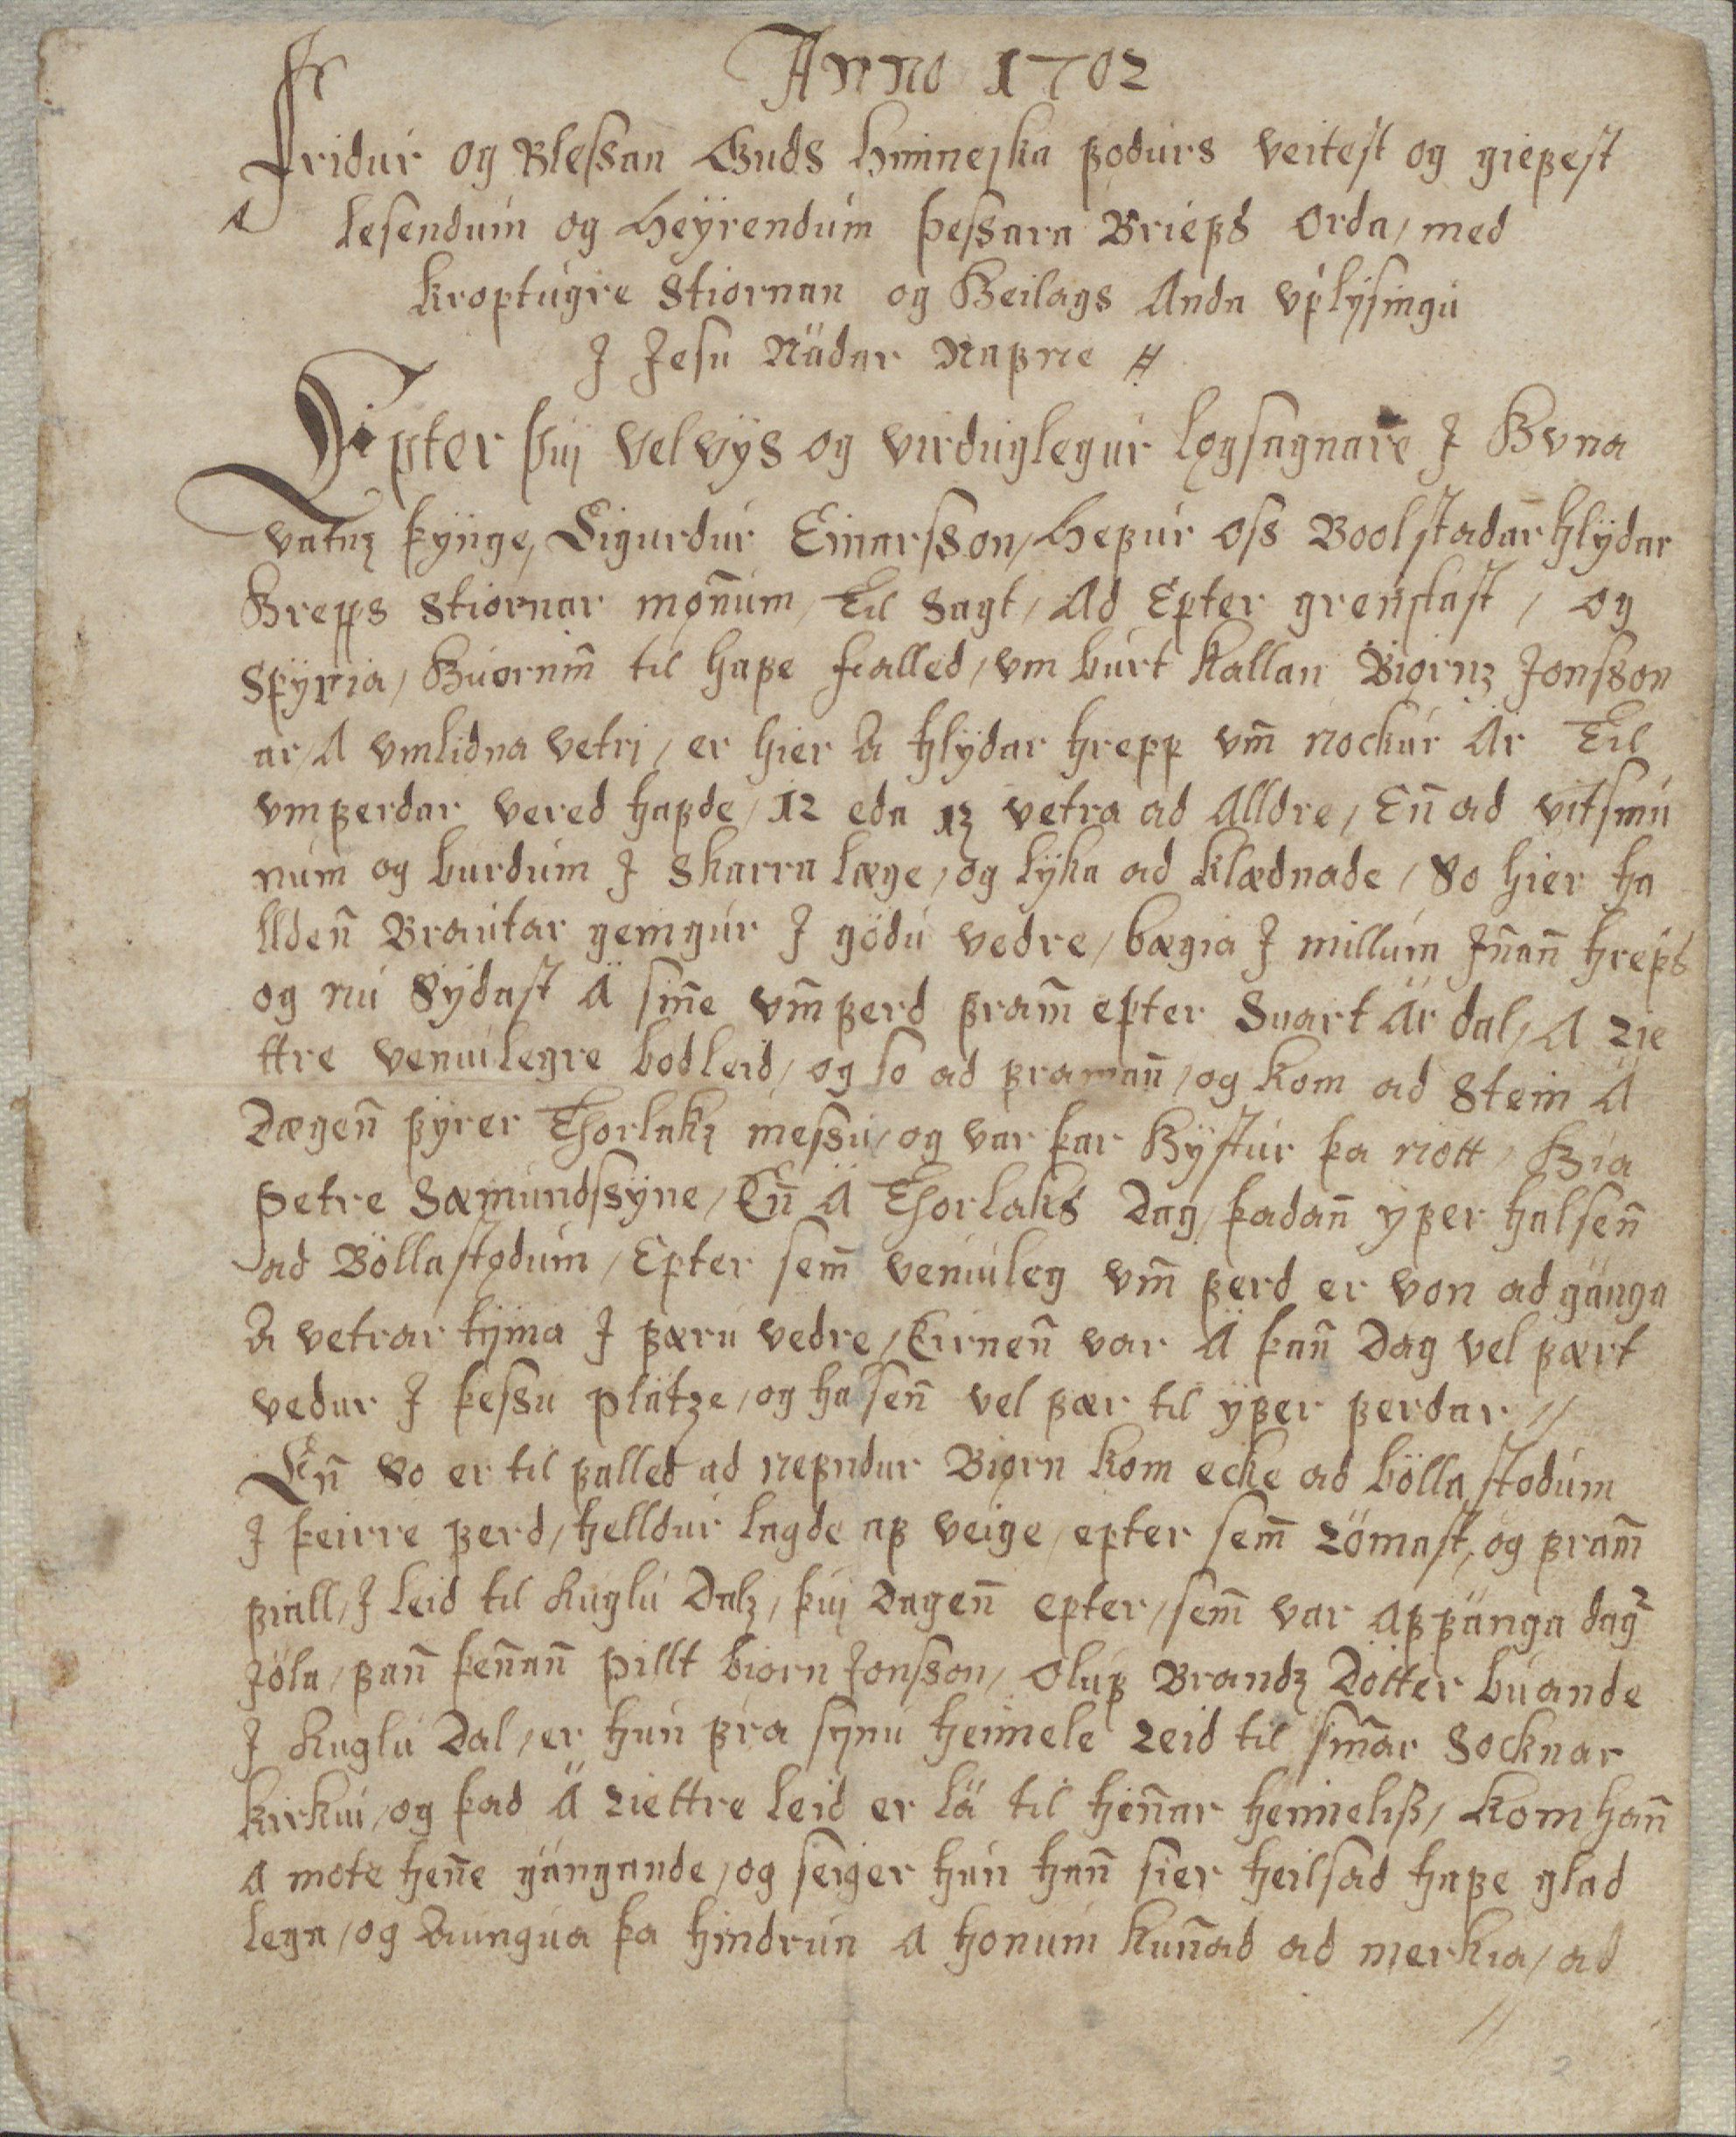 Anno 1702
Fridur og Blessan Guds himneska fodurs veitest og giefest
lesendum og heyrendum þessara Briefs orda, med
kroptugre stiornan og Heilags Anda uplysingu
J Jesu Nädar Nafne
Epter þuj velvÿs og virduglegur løgsagnare J Hvna
vatnz þÿnge, Sigurdur Einarsson, hefur oss Boolstadar hlÿdar
Hrepps stiornar monnum, Til sagt, Ad Epter grenslast, og
Spÿria, Huorninn til hafe fialled, vm burt kallan Biørnz Jonsson
ar, A vmlidna vetri, er hier A hlÿdar hrepp vm nockur Ar Til
vmferdar vered hafde, 12 eda 13 vetra ad Alldre, Enn ad vitsmu
num og burdum J skarra læge, og lÿka ad klædnade, So hier ha
lldenn Brautar geingur J gödu vedre, bægia J millum Jnnann hreps
og nu Sÿdast Ä sinne vmferd framm epter Suart Är dal, A rie
ttre venulegre bodleid, og so ad framann, og kom ad Stein Ä
Dægenn fÿrer Thorlakz messu, og var þar Hÿstur þa nott, Hia
Petre Sæmundssÿne, Enn Ä Thorlaks Dag, þadann yfer halsenn
ad Böllastodum, Epter semm venuleg vmm ferd er von ad gänga
A vetrar tÿma J færu vedre, Eirnenn var Ä þann Dag vel fært
vedur J þessu plätze, og halsenn vel fær til ÿfer ferdar //
Enn so er til falled ad nefndur Biørn kom ecke ad böllastodum
J þeirre ferd, helldur lagde af veige, epter semm römast, og framm
fiall, J leid til kuglu Dalz, þuj Dagenn epter, semm var Affänga dagr
Jöla, fann þennann Pillt biorn Jonsson, Oluf Brandz Dötter buande
J kuglu Dal, er hun fra sÿnu heimele reid til sinnar Socknar
kirkiu, og þad Ä riettre leid er lä til hennar heimelis, kom hann
A mote henne gangande, og seiger hun hann sier heilsad hafe glad
lega, og Aungua þa hindrun A honum kunnad ad merkia, ad
//
2